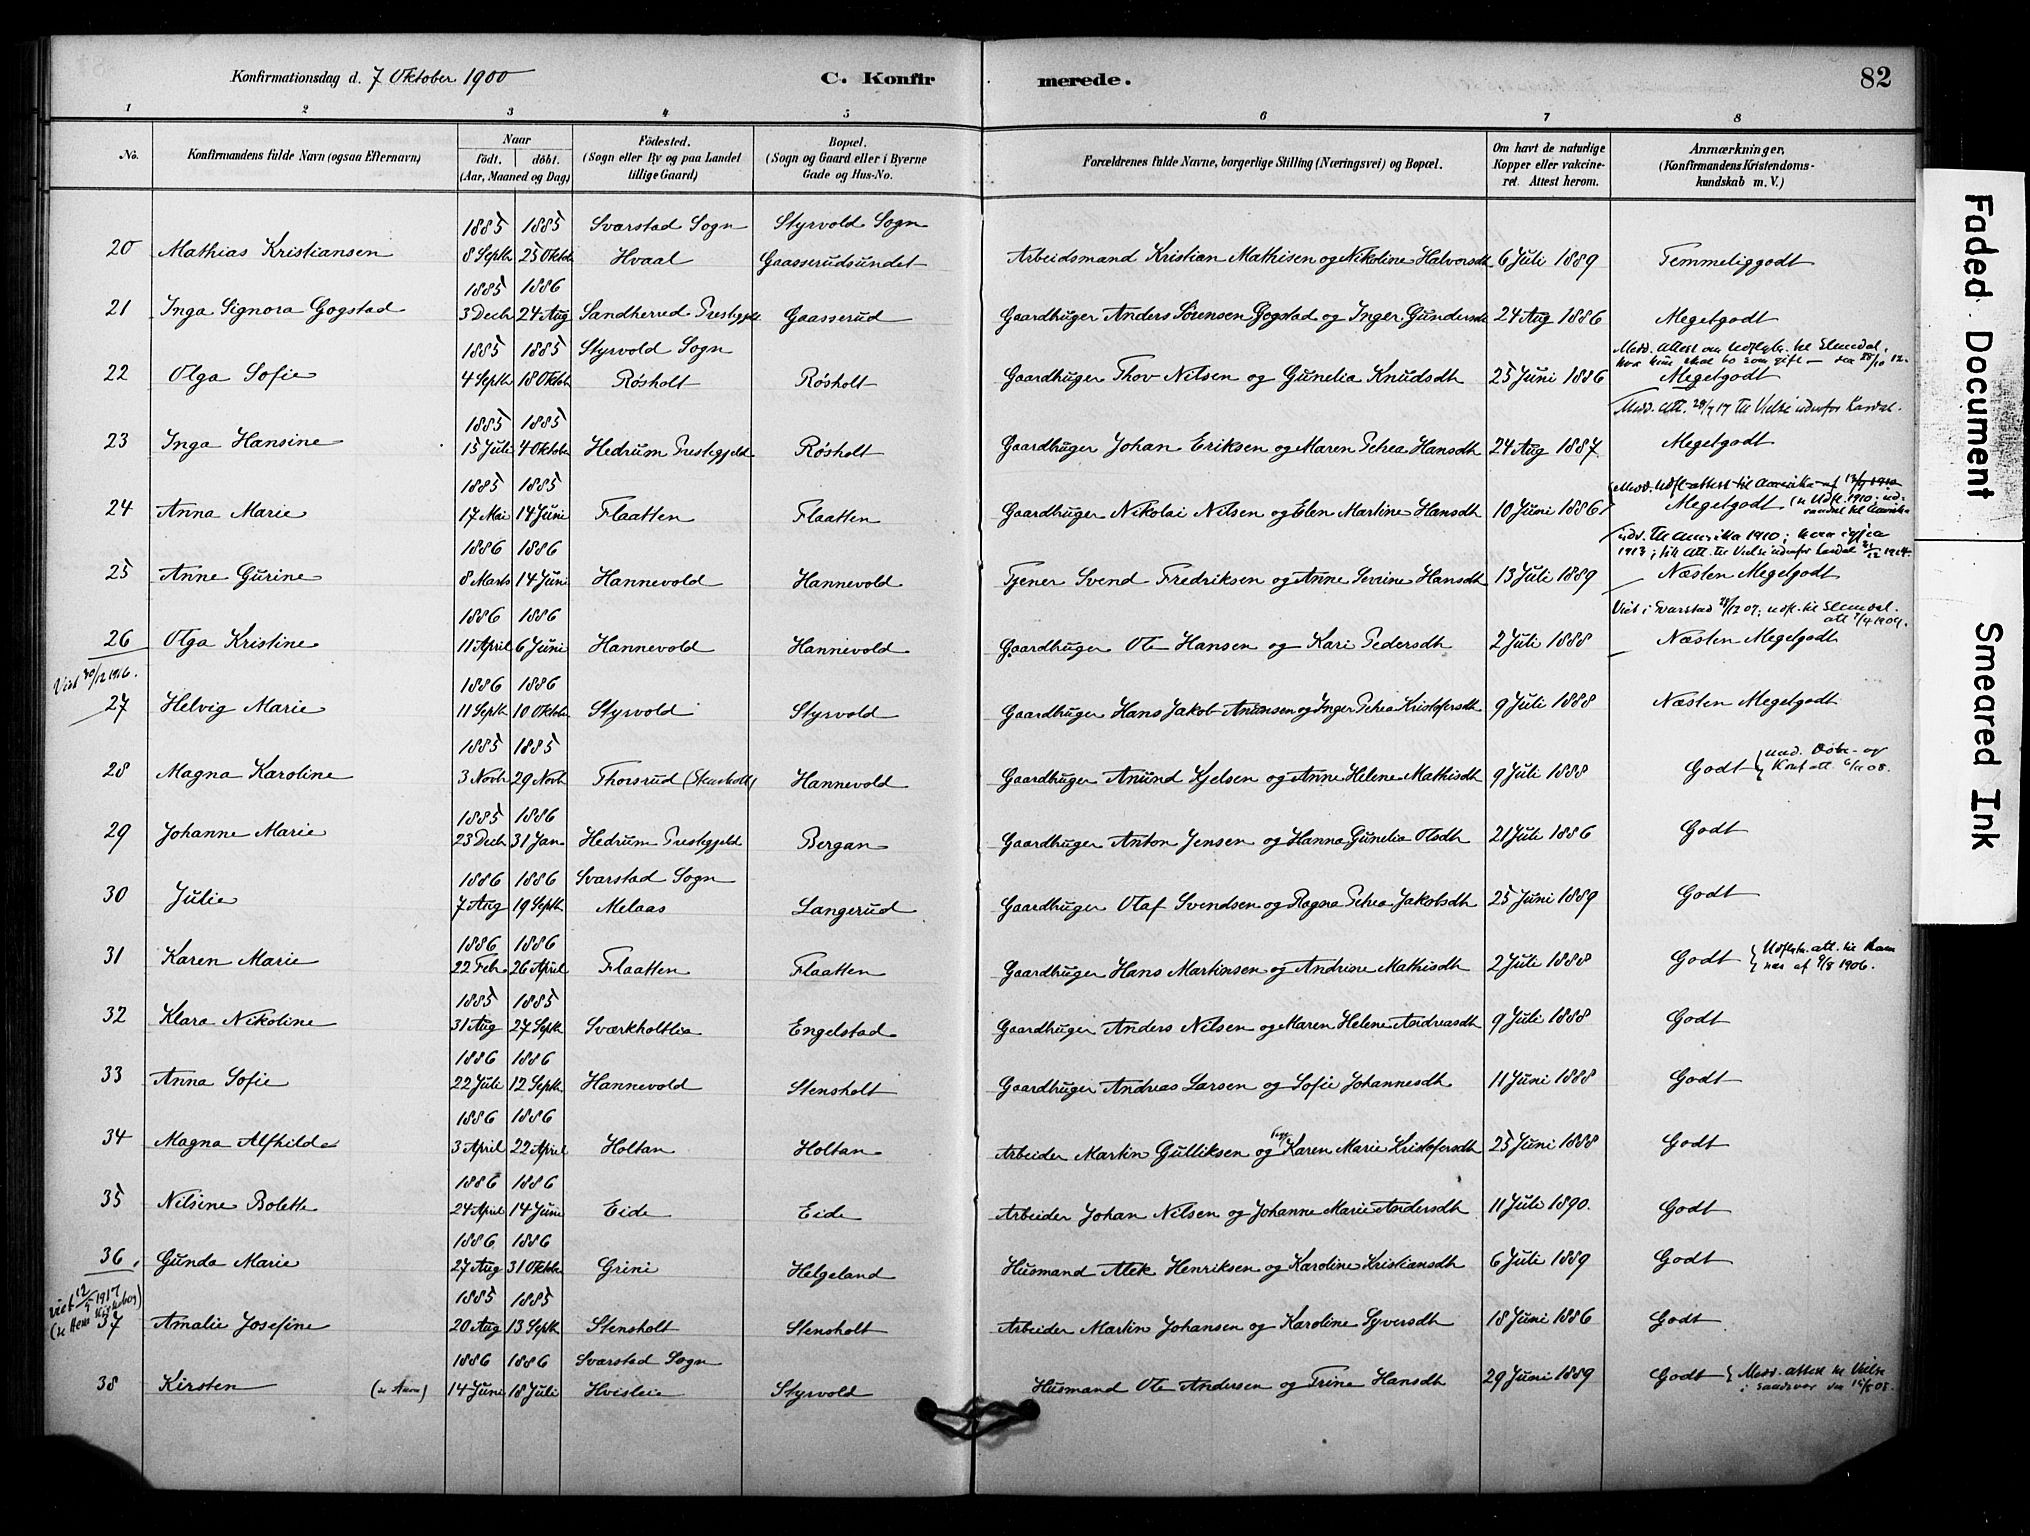 Konfirmationsdag d. 7 Oktober 1900 C. Konfirmerede. 82
1 2 3 4 5 6 7 8
No. Konfirmandens fulde Navn (ogsaa Efternavn) Naar födt. döbt. (Aar, Maaned og Dag) Födested. (Sogn eller By og paa Landet tillige Gaard) Bopæl. (Sogn og Gaard eller i Byerne Gade og Hus-No. Forældrenes fulde Navne, borgerlige Stilling (Næringsvei) og Bopæl. Om havt de naturlige Kopper eller vakcineret. Attest herom. Anmærkninger, (Konfirmandens Kristendomskundskab m. V.)
1885 1885 Svarstad Sogn Styrvold Sogn
20 Mathias Kristiansen 8 Septb 25 Oktob Hvaal Gaasserudsundet Arbeidsmand Kristian Mathisen og Nikoline Halvorsdt 6 Juli 1889 Temmeliggodt
1885 1886
21 Inga Signora Gogstad 3 Decb 24 Aug Sandherred Prestegjeld Gaasserud Gaardbruger Anders Sörensen Gogstad og Inger Gundersdt 24 Aug 1886 Megetgodt
1885 1885 Styrvold Sogn Medd. attest om Udflytn. til Slemdal,
hvor hun skal bo som gift
22 Olga Sofie 4 Septb 18 Oktob Rösholt Rösholt Gaardbruger Thov Nilsen og Gunelia Knudsdt 25 Juni 1886 Megetgodt
1885 1885 Medd. Att. 28/7 17 til Vielse udenfor Lardal.
23 Inga Hansine 15 Juli 4 Oktob Hedrum Prestegjeld Rösholt Gaardbruger Johan Eriksen og Maren Petrea Hansdt 24 Aug 1887 Megetgodt
1885 1885 Medd. Udfl. attest til Amerika af 1910
24 Anna Marie 17 Mai 14 Juni Flaatten Flaatten Gaardbruger Nikolai Nilsen og Elen Martine Hansdt 10 Juni 1886 Megetgodt
1886 1886 udv. til Amerika 1910; kom igjen
1913; fik att. til Vielse udenfor Lardal 1914.
25 Anne Gurine 8 Marts 14 Juni Hannevold Hannevold Tjener Svend Fredriksen og Anne Severine Hansdt 13 Juli 1889 Næsten Megetgodt
1886 1886 Viet i Svarstad 28/12 07; udfl. til Slemdal.
att. 1/4 1909.
26 Olga Kristine 11 April 6 Juni Hannevold Hannevold Gaardbruger Ole Hansen og Kari Pedersdt 2 Juli 1888 Næsten Megetgodt
Viet 30/12 1916. 1886 1886
27 Helvig Marie 11 Septb 10 Oktob Styrvold Styrvold Gaardbruger Hans Jakob Anunsen og Inger Petrea Kristofersdt 9 Juli 1888 Næsten Megetgodt
1885 1885
28 Magna Karoline 3 Novb 29 Novb Thorsrud Hannevold Gaardbruger Anund Kjelsen og Anne Helene Mathisdt 9 Juli 1888 Godt { Med. Döbs- og Konf att. 08.
1885 1886
29 Johanne Marie 23 Decb 31 Jan Hedrum Prestegjeld Bergan Gaardbruger Anton Jensen og Hanna Gunelia Olsdt 21 Juli 1886 Godt
1886 1886 Svarstad Sogn
30 Julie 7 Aug 19 Septb Melaas Langerud Gaardbruger Olaf Svendsen og Ragna Petrea Jakobsdt 25 Juni 1889 Godt
1886 1886
31 Karen Marie 22 Feb 26 April Flaatten Flaatten Gaardbruger Hans Martinsen og Andrine Mathisdt 2 Juli 1888 Godt { Udflytn. att. til Ramnæs af 9/8 1906.
1885 1885
32 Klara Nikoline 31 Aug 27 Septb Sværkholtlia Engelstad Gaardbruger Anders Nilsen og Maren Helene Andreasdt 9 Juli 1888 Godt
1886 1886
33 Anna Sofie 22 Juli 12 Septb Hannevold Stensholt Gaardbruger Andreas Larsen og Sofie Johannesdt 11 Juni 1888 Godt
1886 1886
34 Magna Alfhilde 3 April 22 April Holtan Holtan Arbeider Martin Gulliksen og Karen Marie Kristofersdt 25 Juni 1888 Godt
1886 1886
35 Nilsine Bolette 24 April 14 Juni Eide Eide Arbeider Johan Nilsen og Johanne Marie Andersdt 11 Juli 1890. Godt
1886 1886
36 Gunda Marie 27 Aug 31 Oktob Grini Helgeland Husmand Alek Henriksen og Karoline Kristiansdt 6 Juli 1889 Godt
viet 12/5 1917 1885 1885
37 Amalie Josefine 20 Aug 13 Septb Stensholt Stensholt Arbeider Martin Johansen og Karoline Syversdt 18 Juni 1886 Godt
1886 1886 Svarstad Sogn
38 Kirsten 14 Juni 18 Juli Hvisleie Styrvold Husmand Ole Andersen og Trine Hansdt 29 Juni 1889 Godt { Medd. attest til Vielse i Sandsvær den 15/8 08.
Faded Document
Smeared Ink